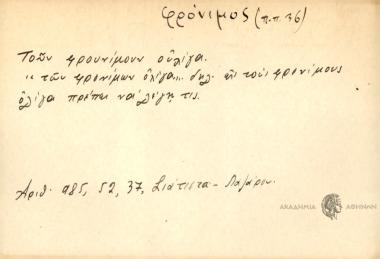 φρόνιμος (π.π. 36)
Τοῦν φρουνίμουν οὐλίγα.
"τῶν φρονίμων ὀλίγα... δηλ. εἰς τοὺς φρονίμους
ὀλίγα πρέπει νὰ λέγῃ τις.
Ἀριθ. 985, 52, 37, Σιάτιστα - Λαζάρου.
ΑΚΑΔΗΜΙΑ ΑΘΗΝΩΝ